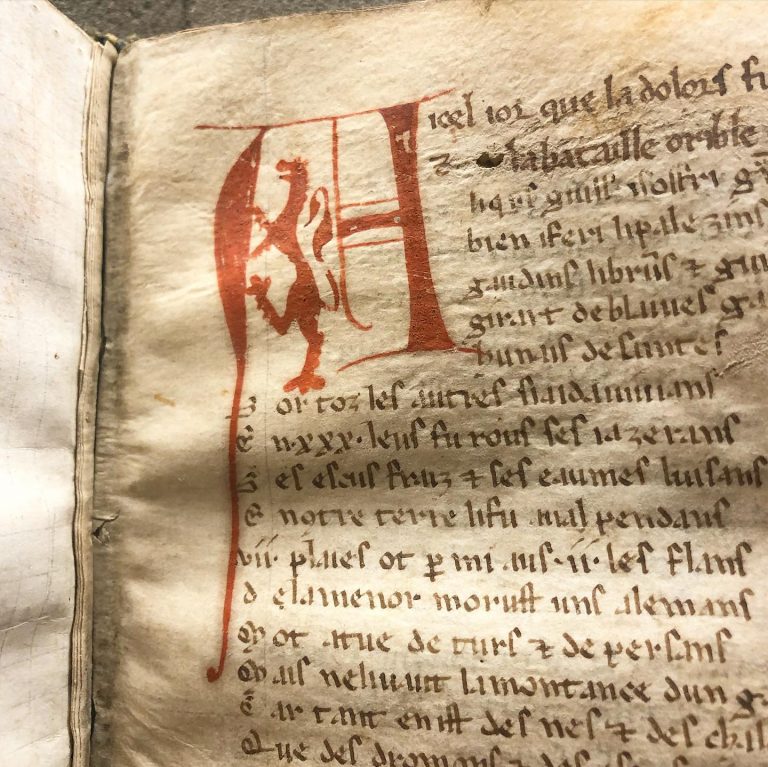 A icel ior que la dolors fu
⁊ la bataille orible
bien iferi li palezins
gaudins li bruns ⁊ gui
girart de blaives ga
hunaus de saintes
S or toz les autres fu
E n .xxx. leus fu rous ses iazerans
S es escus fraiz ⁊ ses eaumes luisans
E n notre terre li fu mal pendans
.vii. plaies ot p mi aus .ii. les flans
d e la menor morust uns alemans
M ot atue de turs ⁊ de persans
M ais ne li vaut la montance dun ga
C ar tant en ist des nes ⁊ des chal
Q ue des dromons ⁊ des